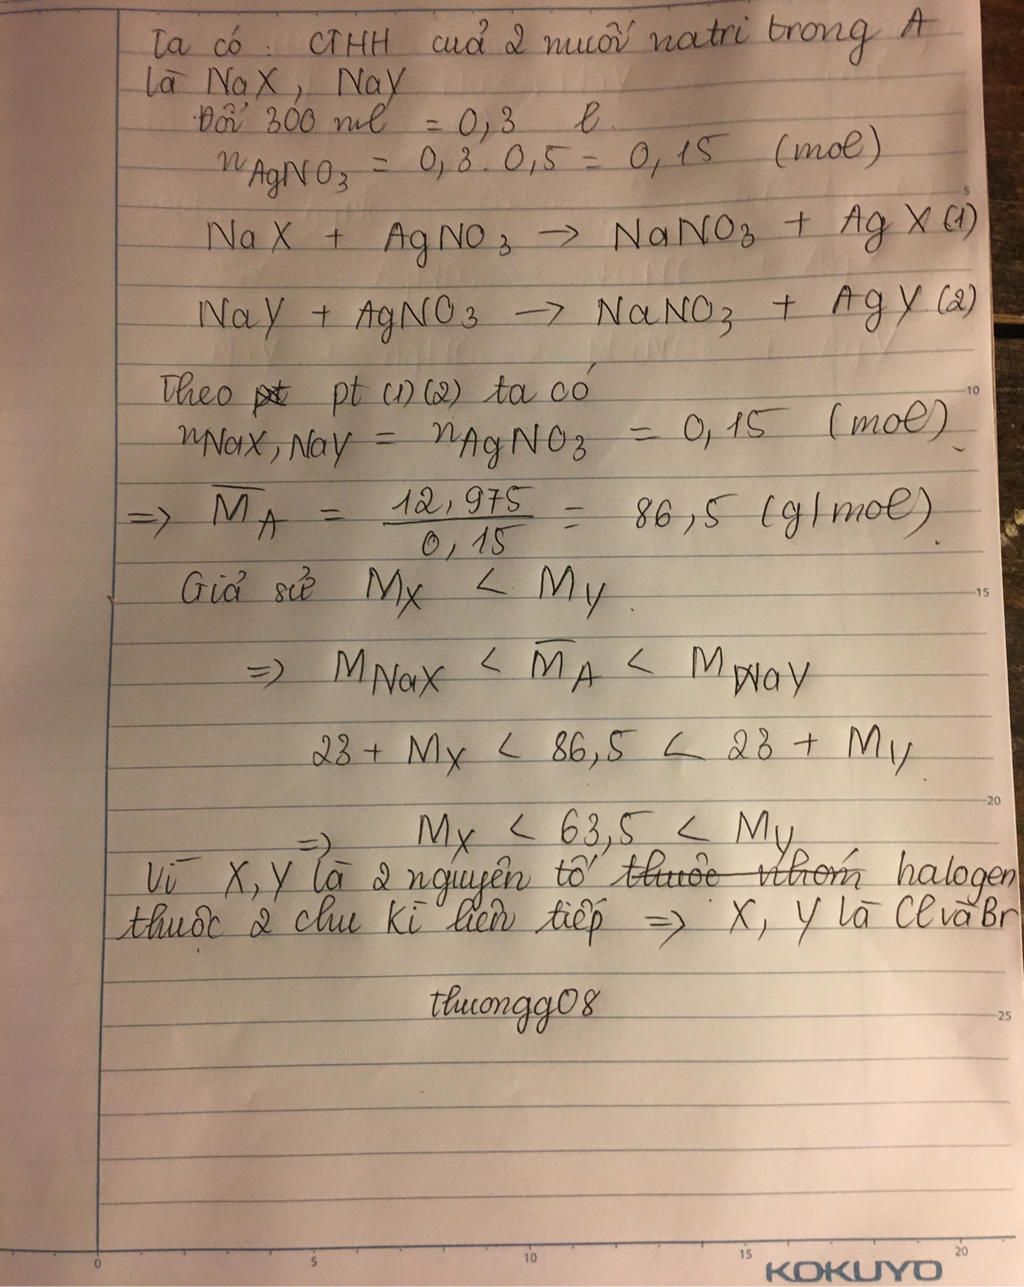 Ta có : CTHH của 2 muối natri trong A
là NaX, NaY
Đổi 300 ml = 0,3 l
nAgNO3 = 0,3.0,5 = 0,15 (mol)
5
NaX + AgNO3 → NaNO3 + AgX (1)
NaY + AgNO3 → NaNO3 + AgY (2)
Theo pt pt (1)(2) ta có
10
nNaX, NaY = nAgNO3 = 0,15 (mol)
=> M̅A = 12,975 / 0,15 = 86,5 (g/mol).
Giả sử MX < MY.
15
=> MNaX < M̅A < MNaY
23 + MX < 86,5 < 23 + MY
20
=> MX < 63,5 < MY
Vì X, Y là 2 nguyên tố thuộc nhóm halogen
thuộc 2 chu kì liên tiếp => X, Y là Cl và Br
thuongg08
25
0 5 10 15 20
KOKUYO